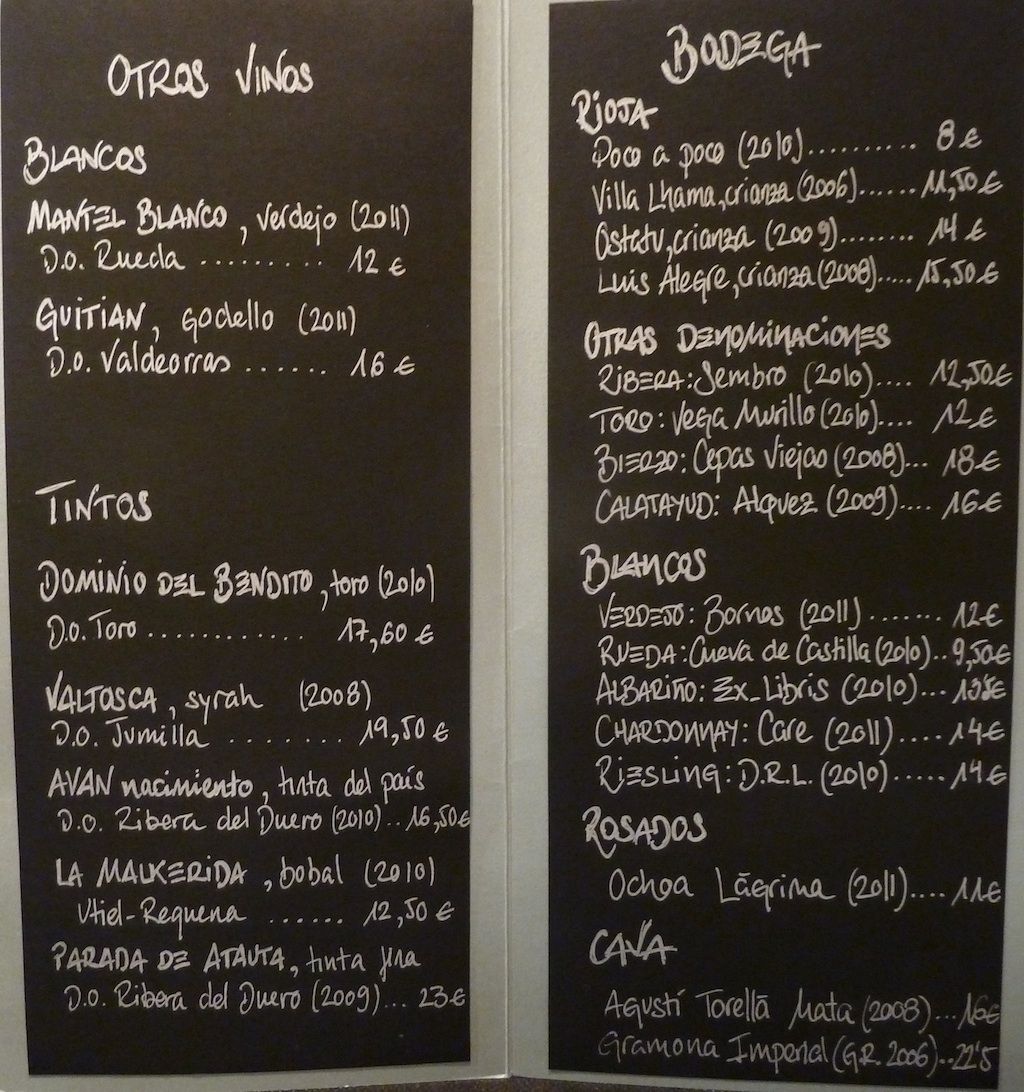 OTROS VINOS
BLANCOS
MANTEL BLANCO, verdejo (2011)
D.O. Rueda ......... 12 €
GUITIAN, godello (2011)
D.O. Valdeorras ...... 16 €
TINTOS
DOMINIO DEL BENDITO, toro (2010)
D.O. Toro ............ 17,60 €
VALTOSCA, syrah (2008)
D.O. Jumilla ........ 19,50 €
AVAN nacimiento, tinta del país
D.O. Ribera del Duero (2010).. 16,50€
LA MALKERIDA, bobal (2010)
Utiel-Requena ...... 12,50 €
PARADA DE ATAUTA, tinta fina
D.O. Ribera del Duero (2009)... 23€
BODEGA
RIOJA
Poco a poco (2010).......... 8 €
Villa Lhama, crianza (2006)...... 11,50 €
Ostatu, crianza (2009)........ 14 €
Luis Alegre, crianza (2008)..... 15,50€
OTRAS DENOMINACIONES
RIBERA: Sembro (2010).... 12,50€
TORO: Vega Murillo (2010).... 12 €
BIERZO: Cepas Viejas (2008)... 18€
CALATAYUD: Alquez (2009).... 16€
BLANCOS
VERDEJO: Bornos (2011) ....... 12€
RUEDA: Cueva de Castilla (2010).. 9,50€
ALBARIÑO: Ex_Libris (2010)... 13'5€
CHARDONNAY: Care (2011) .... 14€
RIESLING: D.R.L. (2010)..... 14€
ROSADOS
Ochoa Lágrima (2011).... 11€
CAVA
Agustí Torelló Mata (2008)... 16€
Gramona Imperial (G.R. 2006).. 22'5